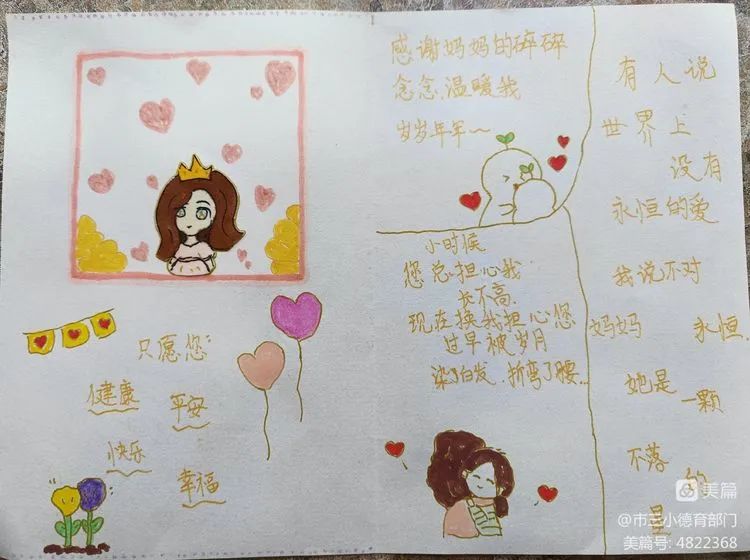 只愿您
健康 平安
快乐
幸福
感谢妈妈的碎碎
念念,温暖我
岁岁年年~
小时候
您总担心我
长不高,
现在换我担心您
过早被岁月
染了白发,折弯了腰...
有人说
世界上
没有
永恒的爱
我说不对
妈妈 永恒,
她是一颗
不落的
星
美篇
@市三小德育部门
美篇号: 4822368